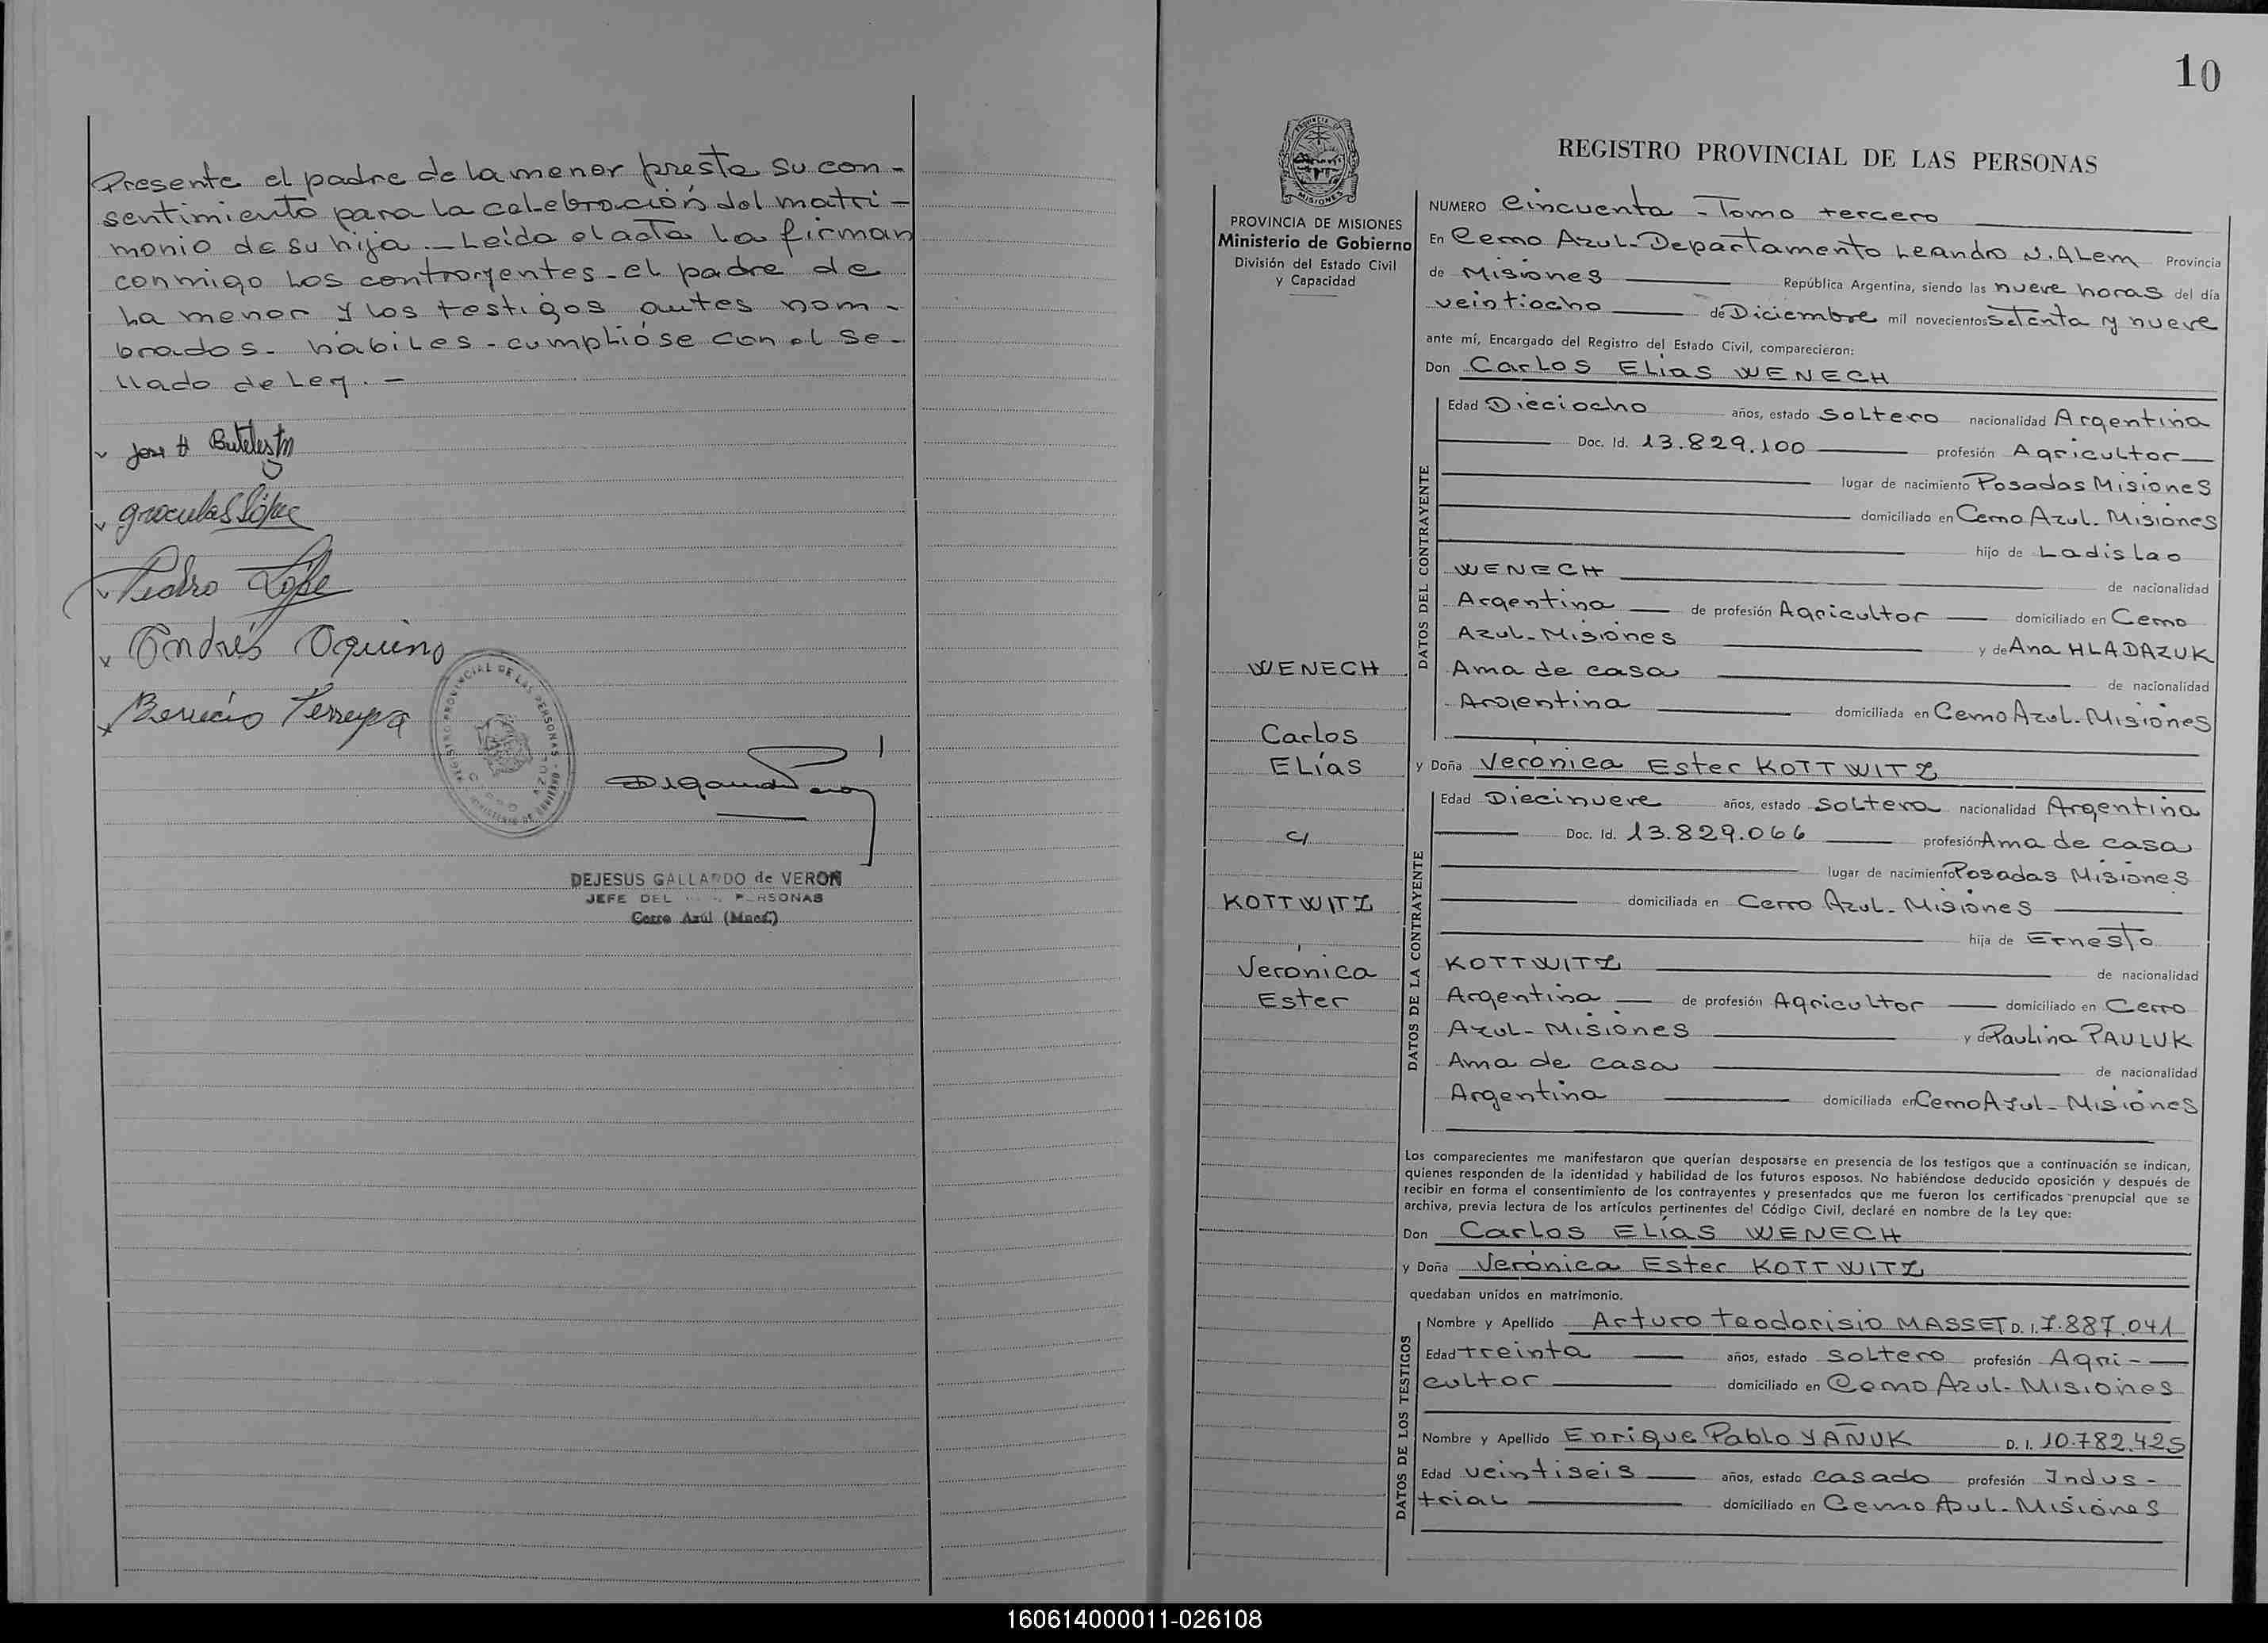 Presente el padre de la menor presta su con-
sentimiento para la celebración del matri-
monio de su hija.- Leída el acta la firman
conmigo los contrayentes- el padre de
la menor y los testigos antes nom-
brados- hábiles- cumplióse con el se-
llado de Ley.-
Pedro López
Andrés Oquino
DEJESUS GALLARDO de VERON
JEFE DEL PERSONAS
Cerro Azúl (Mnes.)
10
PROVINCIA DE MISIONES
Ministerio de Gobierno
División del Estado Civil
y Capacidad
WENECH
Carlos
Elías
c/
KOTTWITZ
Verónica
Ester
REGISTRO PROVINCIAL DE LAS PERSONAS
NUMERO Cincuenta - Tomo tercero
En Cerro Azul- Departamento Leandro N. Alem Provincia
de Misiones República Argentina, siendo las nueve horas del día
veintiocho de Diciembre mil novecientos Setenta y nueve
ante mí, Encargado del Registro del Estado Civil, comparecieron:
Don Carlos Elías WENECH
DATOS DEL CONTRAYENTE
Edad Dieciocho años, estado soltero nacionalidad Argentina
Doc. Id. 13.829.100 profesión Agricultor
lugar de nacimiento Posadas Misiones
domiciliado en Cerro Azul. Misiones
hijo de Ladislao
WENECH de nacionalidad
Argentina de profesión Agricultor domiciliado en Cerro
Azul- Misiones y de Ana HLADAZUK
Ama de casa de nacionalidad
Argentina domiciliada en Cerro Azul. Misiones
y Doña Verónica Ester KOTTWITZ
DATOS DE LA CONTRAYENTE
Edad Diecinueve años, estado soltera nacionalidad Argentina
Doc. Id. 13.829.066 profesión Ama de casa
lugar de nacimiento Posadas Misiones
domiciliada en Cerro Azul- Misiones
hija de Ernesto
KOTTWITZ de nacionalidad
Argentina de profesión Agricultor domiciliado en Cerro
Azul- Misiones y de Paulina PAULUK
Ama de casa de nacionalidad
Argentina domiciliada en Cerro Azul- Misiones
Los comparecientes me manifestaron que querían desposarse en presencia de los testigos que a continuación se indican,
quienes responden de la identidad y habilidad de los futuros esposos. No habiéndose deducido oposición y después de
recibir en forma el consentimiento de los contrayentes y presentados que me fueron los certificados prenupcial que se
archiva, previa lectura de los artículos pertinentes del Código Civil, declaré en nombre de la Ley que:
Don Carlos Elías WENECH
y Doña Verónica Ester KOTTWITZ
quedaban unidos en matrimonio.
DATOS DE LOS TESTIGOS
Nombre y Apellido Arturo Teodorisio MASSET D. I. 7.887.041
Edad treinta años, estado soltero profesión Agri-
cultor domiciliado en Cerro Azul- Misiones
Nombre y Apellido Enrique Pablo YAÑUK D. I. 10.782.425
Edad veintiseis años, estado casado profesión Indus-
trial domiciliado en Cerro Azul- Misiones
160614000011-026108